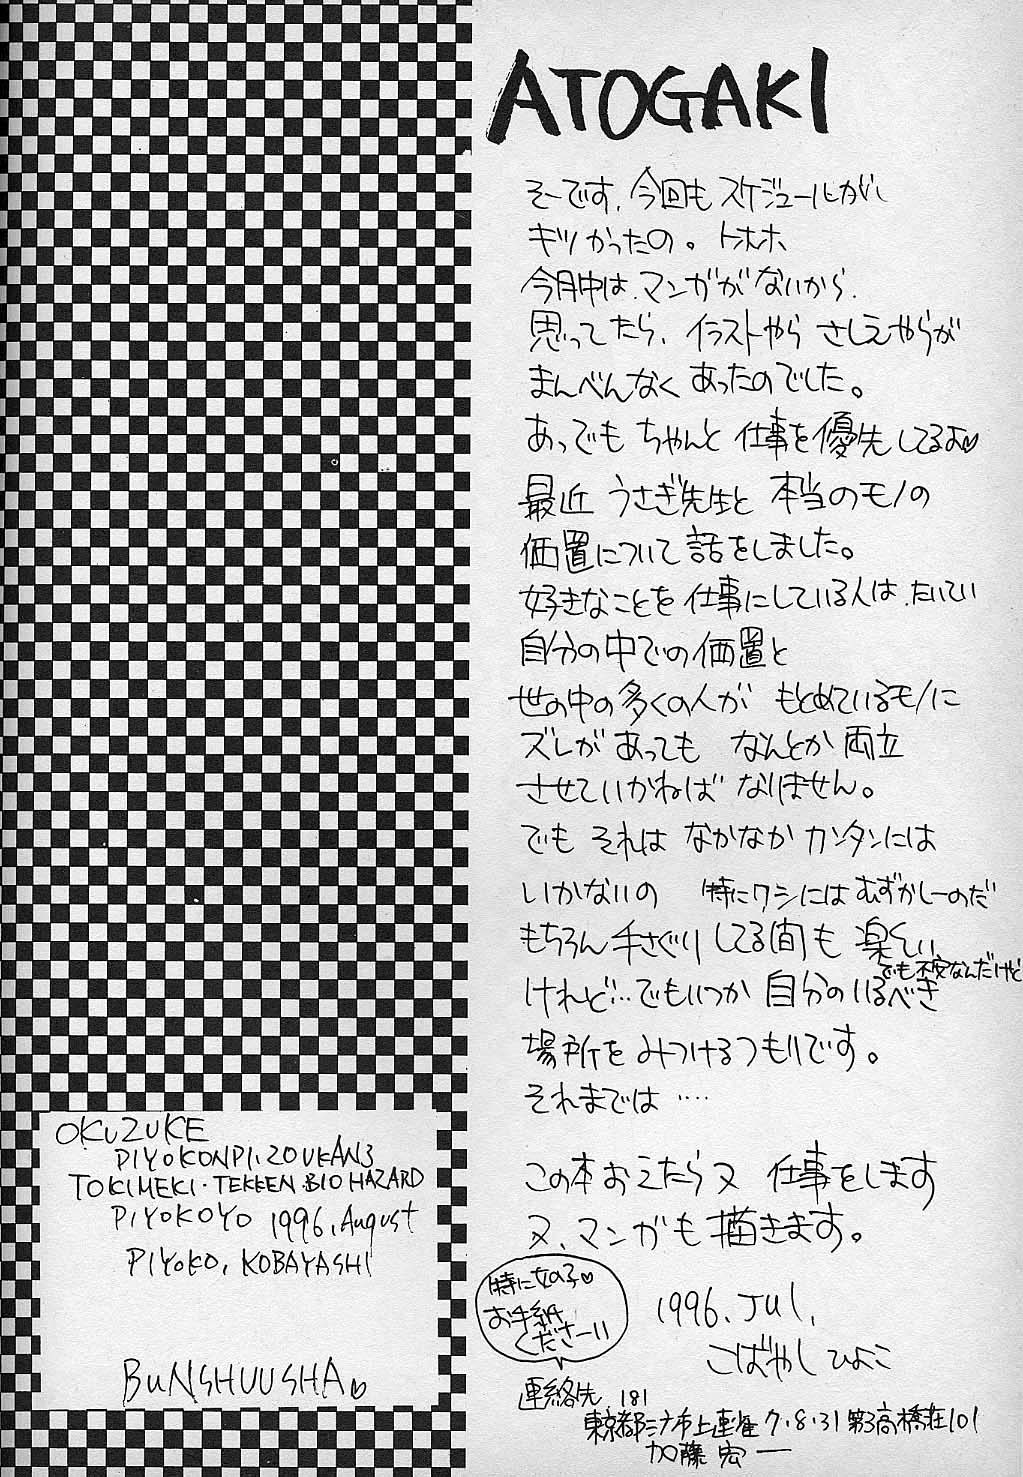 ATOGAKI
そーです、今回もスケジュールがし
キツかったの。トホホ
今月中は、マンガがないから、
思ってたら、イラストやら さしえやらが
まんべんなく あったのでした。
あっでも ちゃんと 仕事を優先してるよ♡
最近 うさぎ先生と 本当のモノの
価置について 話をしました。
好きなことを 仕事にしている人は、たいてい
自分の中での価置と
世の中の多くの人が もとめているモノに
ズレが あっても なんとか両立
させていかねば なりません。
でも それは なかなか カンタンには
いかないの 特にワシにはむずかしーのだ
もちろん 手さぐりしてる間も 楽しい
でも不安なんだけど
けれど…でもいつか 自分のいるべき
場所を みつけるつもりです。
それまでは‥‥
この本おえたら又 仕事をします
又、マンガも描きます。
1996. Jul.
こばやし ひよこ
特に女の子♡
お手紙
くださーい
連絡先 181
東京都三鷹市上連雀7・8・31 第3高橋荘101
加藤 宏一
OKUZUKE
PIYOKONPI・ZOUKAN3
TOKIMEKI・TEKKEN・BIO HAZARD
PIYOKOYO 1996. August
PIYOKO. KOBAYASHI
BUNSHUUSHA♡